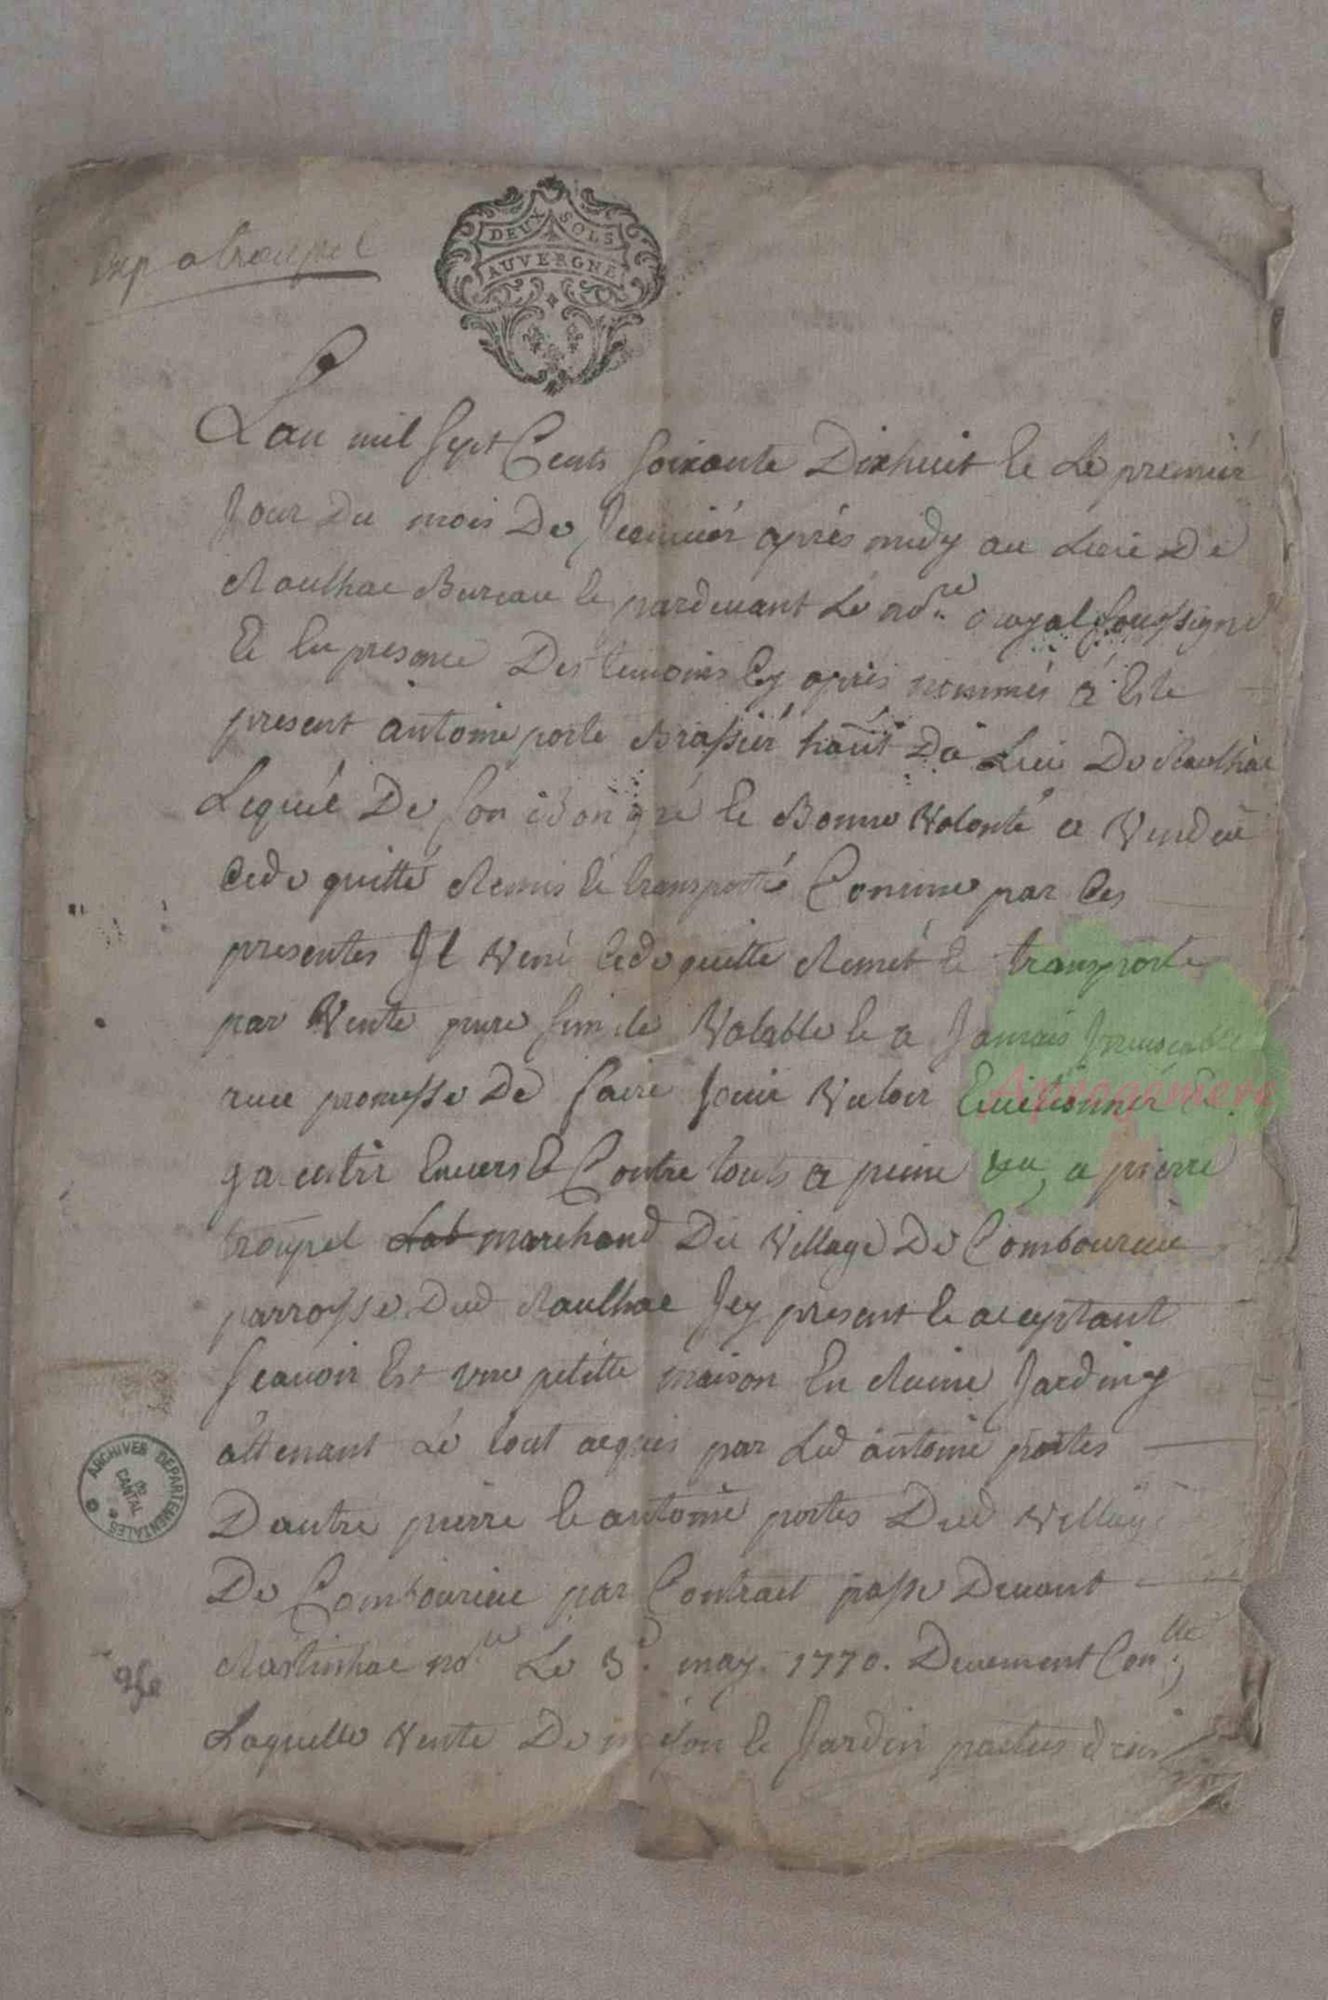 Exp a troupel
DEUX SOLS
AUVERGNE
Lan mil Sept Cents Soixante Dixhuit le Le premiér
Jour Du mois De Jeanviér aprés midy au Lieu De
Raulhac Bureau le pardevant Le no.re royal Soussigné
Et En presance Des temoins Cy aprés nommés à Esté
present antoine porte Brassiér haût Du Lieu De Raulhac
Lequél De Son Bon gré le Bonne Volonté a Vendeu
Cede quitté Remis Et transporté Comme par Ces
presentes Jl Vent Cede quitte Remét le transporte
par Vente pure Simple Valable le a Jamais Jrrevocable
avec promesse De faire Jouir Valoir Evictionnér Et
garentir Envers Et Contre touts a peine a pierre
troupel marchand Du Village De Combourieu
parroisse Dud Raulhac Jcy present le aceptant
Scavoir Est une petitte maison En Ruine Jarding
attenant Le tout acquis par Led antoine portes
Dautre pierre le antoine portes Dud Village
De Combourieu par Contract passe Devant
no.re Le 3. may. 1770. Deuement Con.llé
Laquelle Vente De Jardin
ARCHIVES DEPARTEMENTALES
DU
CANTAL
Approgeniere